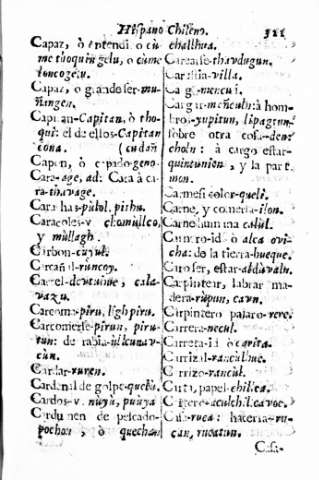 Hispano Chileno. 321
Capaz, ò entendido cũ-
me thoquin gelu, o cũme
loncogelu.
Capaz, o grande ser-mu-
ñangen.
Capitan-Capitan, ò tho-
qui: el de ellos-Capitan
cona.
Capon, ò capado-geno-
Cara-age, ad: Cara à ca-
ra-thavage.
Carachas-pùlol, pithu.
Caracoles-v chomùllco,
y mùllagh.
Carbon-cùyùl.
Carcañal-rùncoy.
Carcel-devatuùe, cala-
vazu.
Carcoma-piru, lighpiru.
Carcomerse-pirun, piru-
tun: de rabia-ùlcunav-
cùn.
Cardar-ruren.
Cardenal de golpe-quechu.
Cardos-v. nùyù, puùya
Cardumen de pescado-
pochon, ò quechan
challhua.
Carearse-thavdugun.
Carestia-villa.
Carga-mencui.
Cargar-menculn: à hom-
bros-yupitun, lipagtun:
sobre otra cosa-denc
choln: à cargo estar-
quintunien, y la part.
mon.
Carmesi color-queli.
Carne, y comerla-ilon.
Carne humana calùl.
Carnero-id ò alca ovi-
cha: de la tierra-hueque.
Caroser, estar-abdùvaln.
Carpintear, labrar ma-
dera-rùpun, cavn.
Carpintero pajaro-rere.
Carrera-necul.
Carreta-id ò carita.
Carrizal-ranculhue.
Carrizo-rancùl.
Carta, papel-chilca.
Cartero-culchilcavoe.
Casa-ruca: hacerla-ru-
can, rucatun.
Casa-